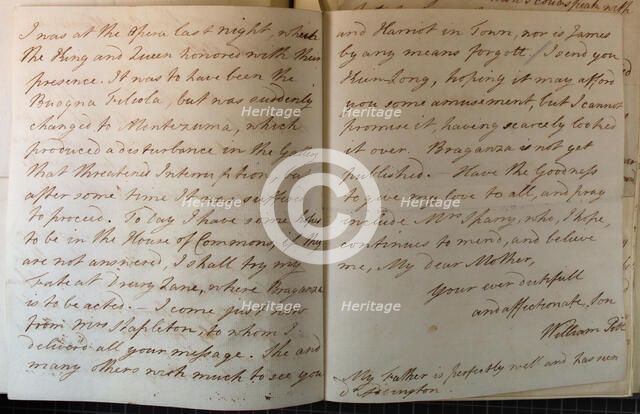 I was at the Opera last night, which
the King and Queen honored with their
presence. It was to have been the
Buogna Filiola, but was suddenly
changed to Montezuma, which
produced a disturbance in the Gallery
that threatened Interruption, but
after some time Opera suffered
to proceed. To day I have some
to be in the House of Commons, if they
are not answered, I shall try my
Fate at Drury Lane, where Braganza
is to be acted. — I come just now
from Mrs Stapleton, to whom I
deliverd all your message. She and
many others wish much to see you
and Harriot in Town, nor is James
by any means forgott. I send you
Hein-Yong, hoping it may afford
you some amusement, but I cannot
promise it, having scarcely looked
it over. Braganza is not yet
published. — Have the Goodness
to give my love to all, and pray
include Mrs Sparry, who, I hope,
continues to mend, and believe
me, My dear Mother,
Your ever dutifull
and affectionate, Son
William Pitt
My Father is perfectly well and has seen
Dr Addington.
Heritage
Heritage
Heritage
Heritage
Heritage
Heritage
©